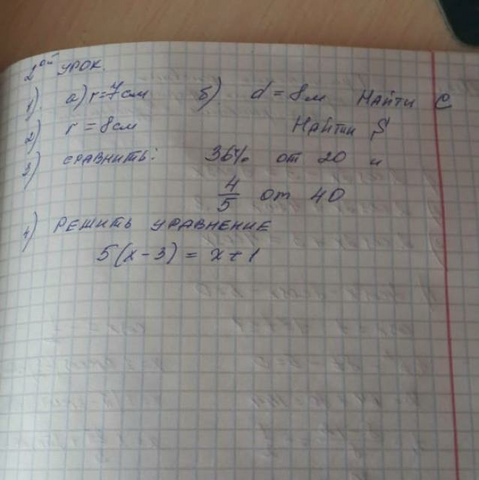 2ой урок.
1). а) r=7см б) d = 8м Найти C
2) r = 8см Найти S
3) сравнить: 36% от 20 и
4/5 от 40
4) Решить уравнение
5(x-3) = x+1